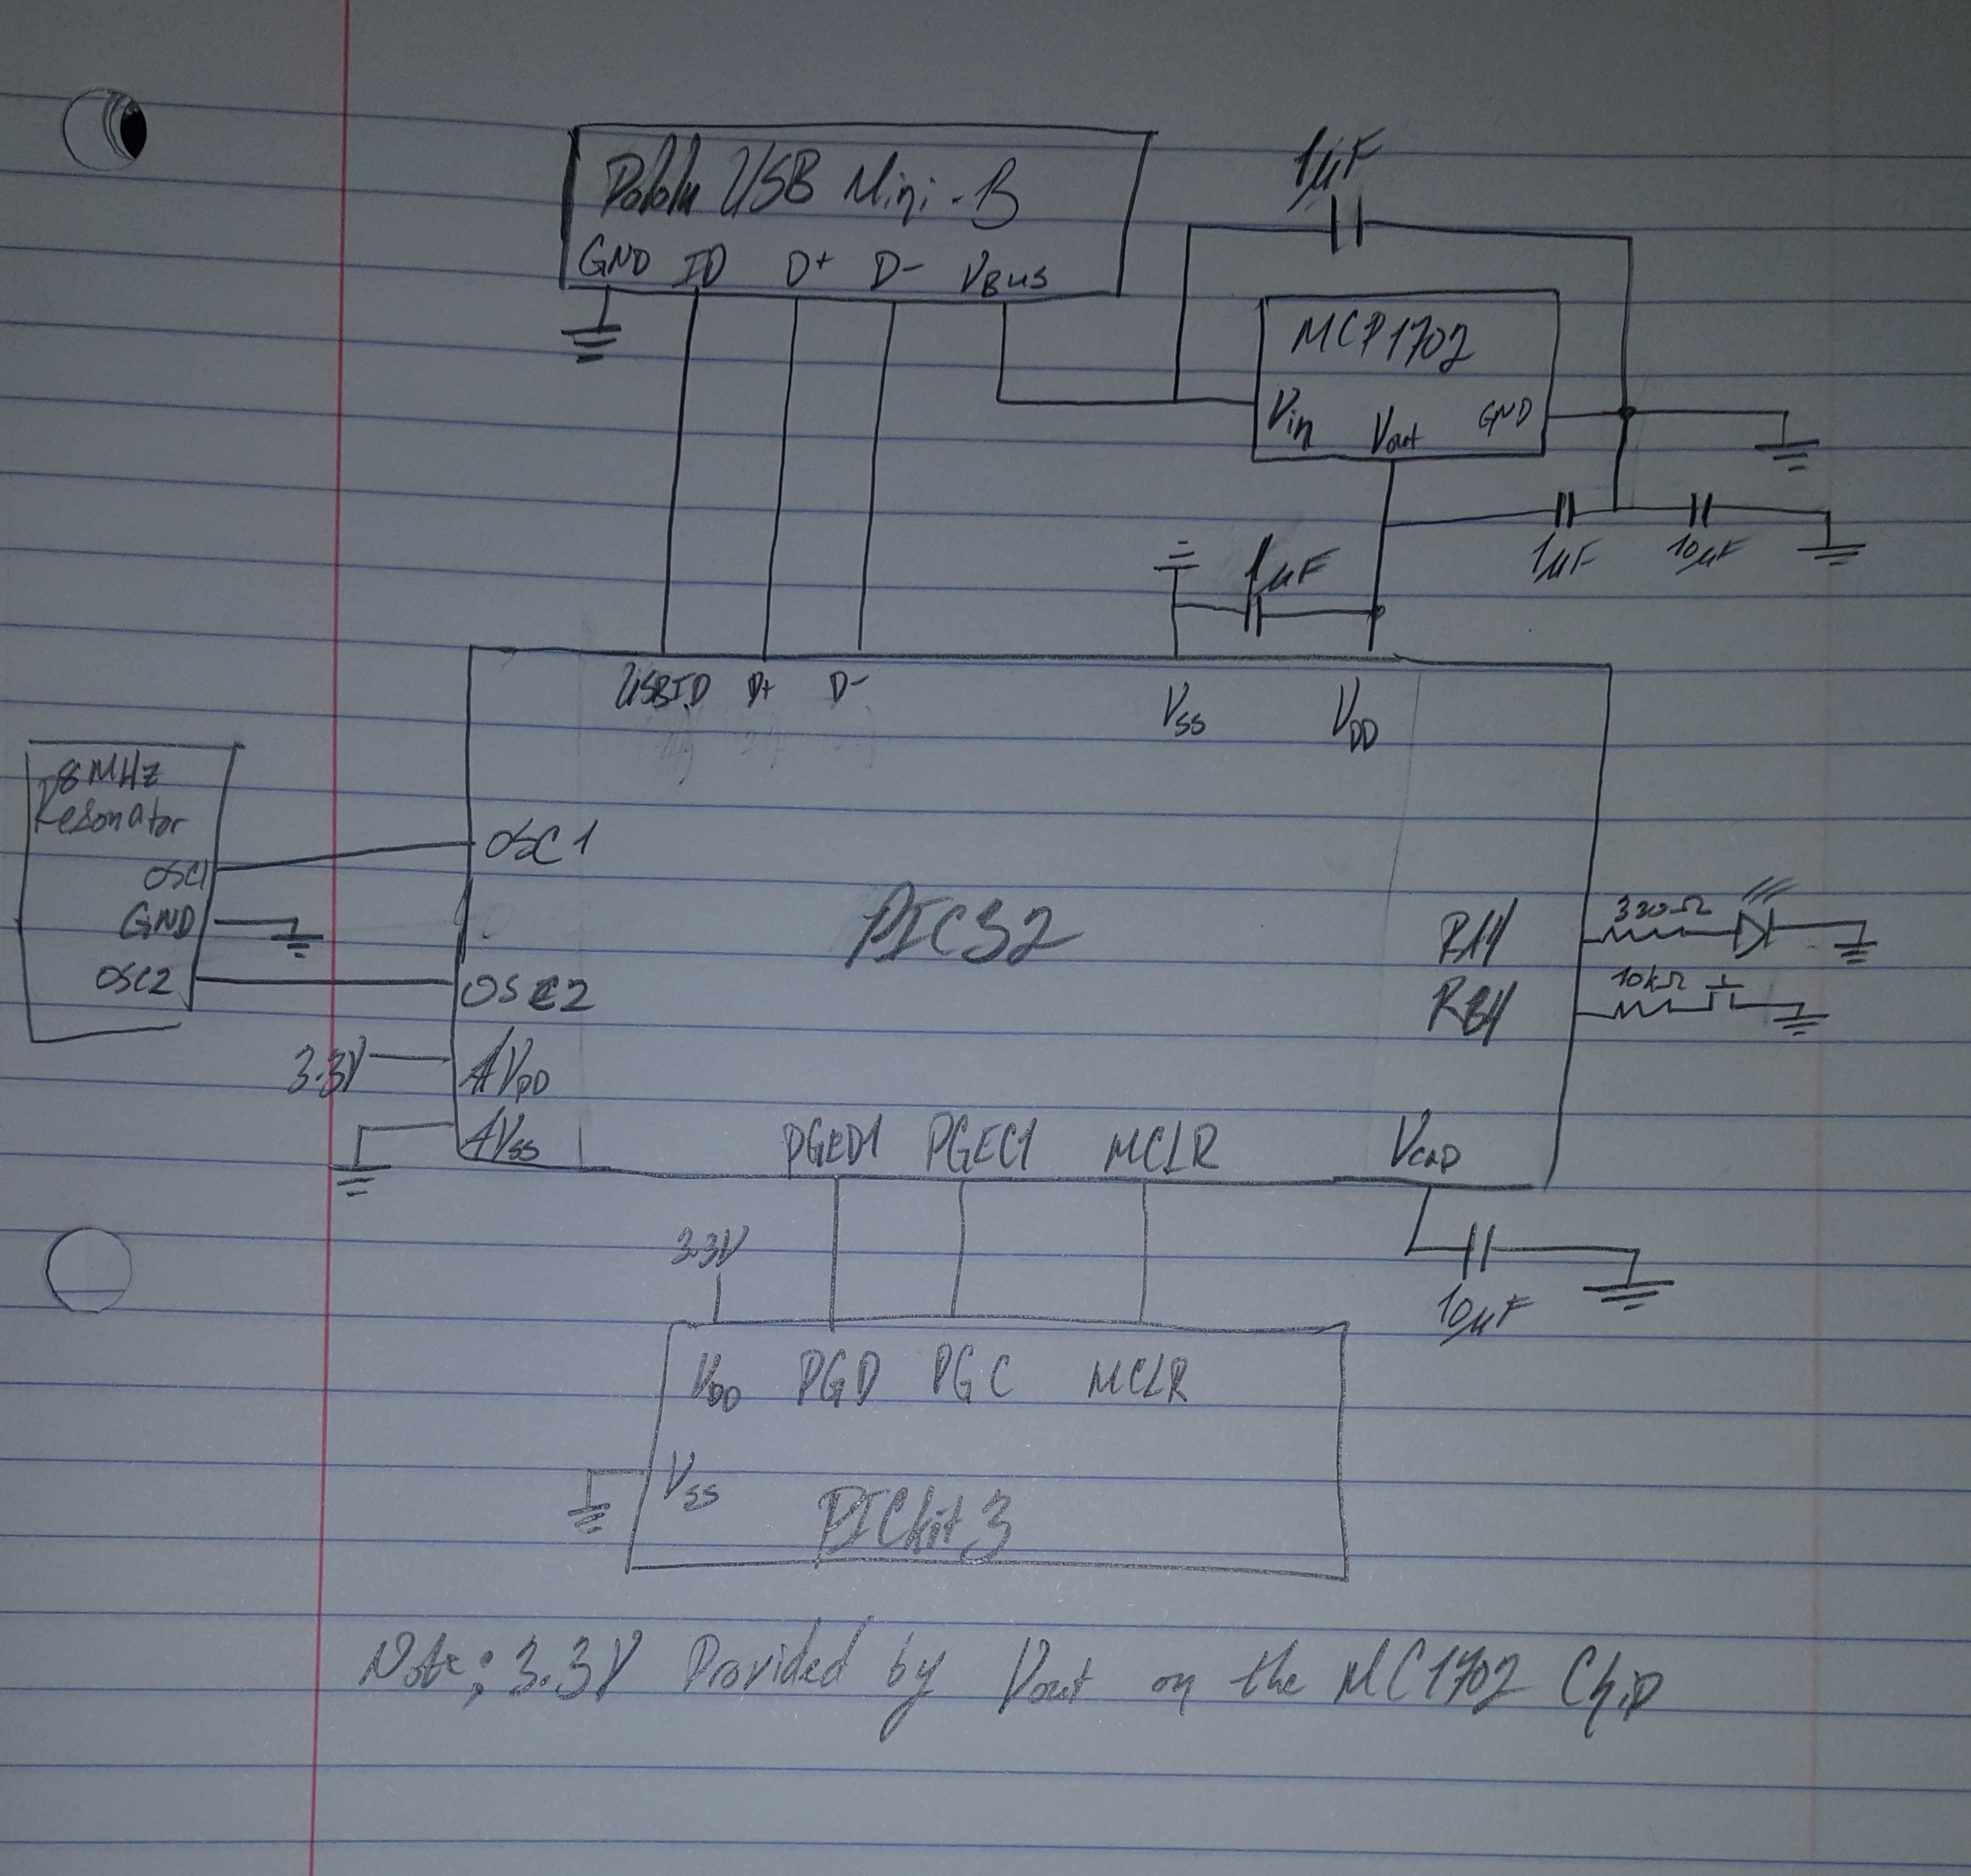 Pololu USB Mini-B
GND ID D+ D- VBUS
1µF
MCP1702
Vin Vout GND
1µF 10µF
1µF
USBID D+ D-
VSS VDD
8MHz
Resonator
OSC1
GND
OSC2
OSC1
OSC2
3.3V
AVDD
AVSS
PIC32
RA4
330Ω
RB4
10kΩ
PGED1 PGEC1 MCLR VCAP
3.3V
10µF
VDD PGD PGC MCLR
VSS
PICkit 3
Note: 3.3V Provided by Vout on the MC1702 Chip